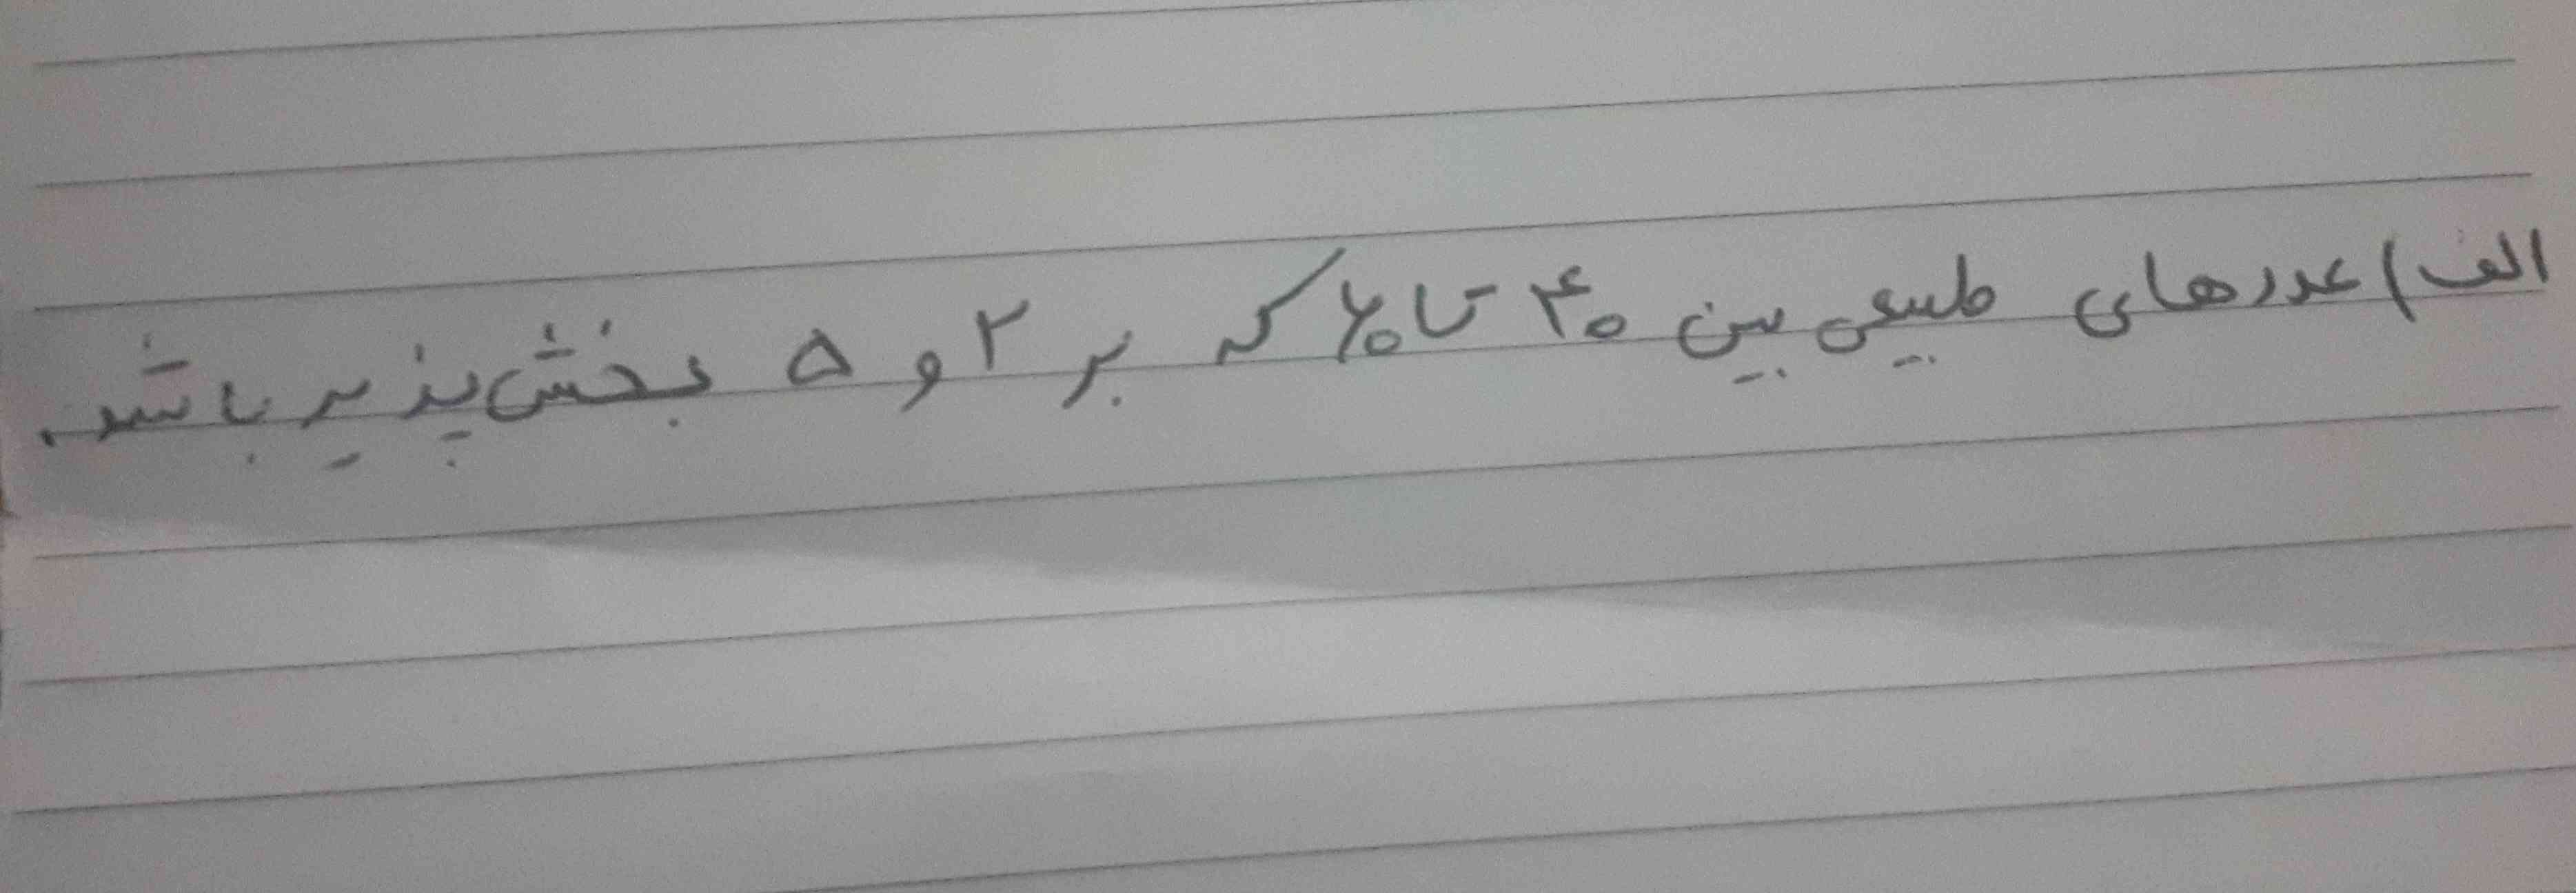 الف) عددهای طبیعی بین ۴۰ تا ۶۰ که بر ۲ و ۵ بخش پذیر باشد.